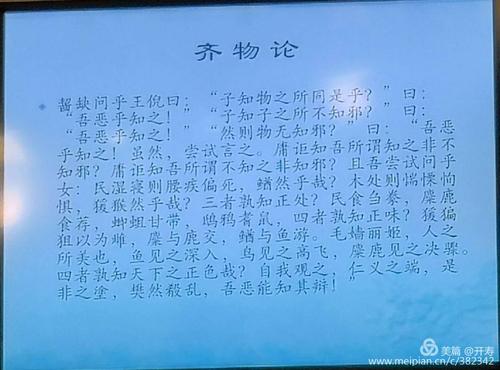 齐物论
齧缺问乎王倪曰：“子知物之所同是乎？”曰：
“吾恶乎知之！”“子知子之所不知邪？”曰：
“吾恶乎知之！”“然则物无知邪？”曰：“吾恶
乎知之！虽然，尝试言之。庸讵知吾所谓知之非不
知邪？庸讵知吾所谓不知之非知邪？且吾尝试问乎
女：民湿寝则腰疾偏死，鰌然乎哉？木处则惴慄恂
惧，猨猴然乎哉？三者孰知正处？民食刍豢，麋鹿
食荐，蝍蛆甘带，鸱鸦耆鼠，四者孰知正味？猨猵
狙以为雌，麋与鹿交，鰌与鱼游。毛嫱丽姬，人之
所美也，鱼见之深入，鸟见之高飞，麋鹿见之决骤。
四者孰知天下之正色哉？自我观之，仁义之端，是
非之塗，樊然殽乱，吾恶能知其辩！”
美篇 @开寿
www.meipian.cn/c/382342